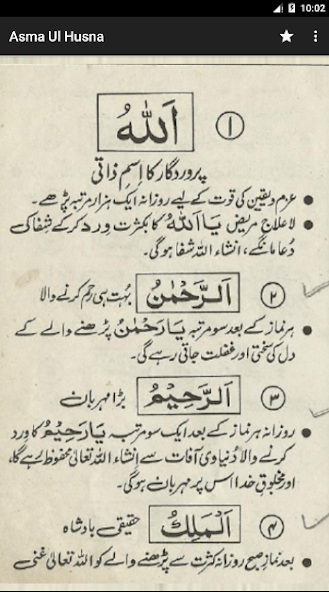 10:02
Asma Ul Husna
۱ اَللهُ
پروردگار کا اِسمِ ذاتی
● عزم و یقین کی قوت کے لیے روزانہ ایک ہزار مرتبہ پڑھے۔
● لاعلاج مریض یَا اَللهُ کا بکثرت ورد کرکے شفا کی
دُعا مانگے، انشاء اللہ شفا ہوگی۔
۲ اَلرَّحْمٰنُ بہُت ہی رحم کرنے والا
● ہر نماز کے بعد سو مرتبہ یَا رَحْمٰنُ پڑھنے والے کے
دل کی سختی اور غفلت جاتی رہے گی۔
۳ اَلرَّحِیْمُ بڑا مہربان
● روزانہ ہر نماز کے بعد ایک سو مرتبہ یَا رَحِیْمُ کا وِرد
کرنے والا دُنیاوی آفات سے انشاء اللہ تعالیٰ محفوظ رہے گا،
اور مخلوقِ خدا اس پر مہربان ہوگی۔
۴ اَلْمَلِكُ حقیقی بادشاہ
● بعد نمازِ صبح روزانہ کثرت سے پڑھنے والے کو اللہ تعالیٰ غنی